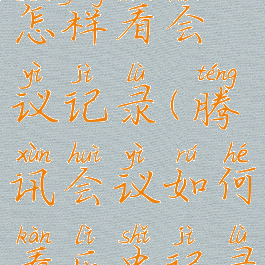 怎样看会
yì jì lù téng
议记录(腾
xùn huì yì rú hé
讯会议如何
kàn lì shǐ jì lù
看历史记录